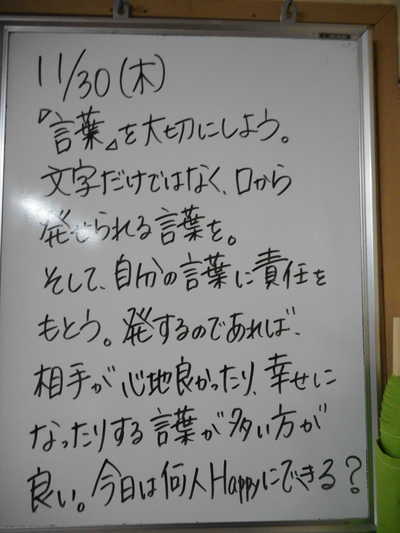 11/30(木)
『言葉』を大切にしよう。
文字だけではなく、口から
発せられる言葉を。
そして、自分の言葉に責任を
もとう。発するのであれば、
相手が心地良かったり、幸せに
なったりする言葉が多い方が
良い。今日は何人Happyにできる？